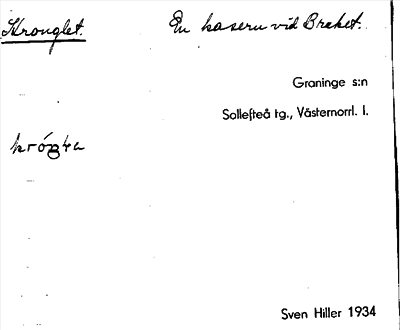 Kronglet. En kasern vid Breket.
Graninge s:n
Sollefteå tg., Västernorrl. l.
Sven Hiller 1934